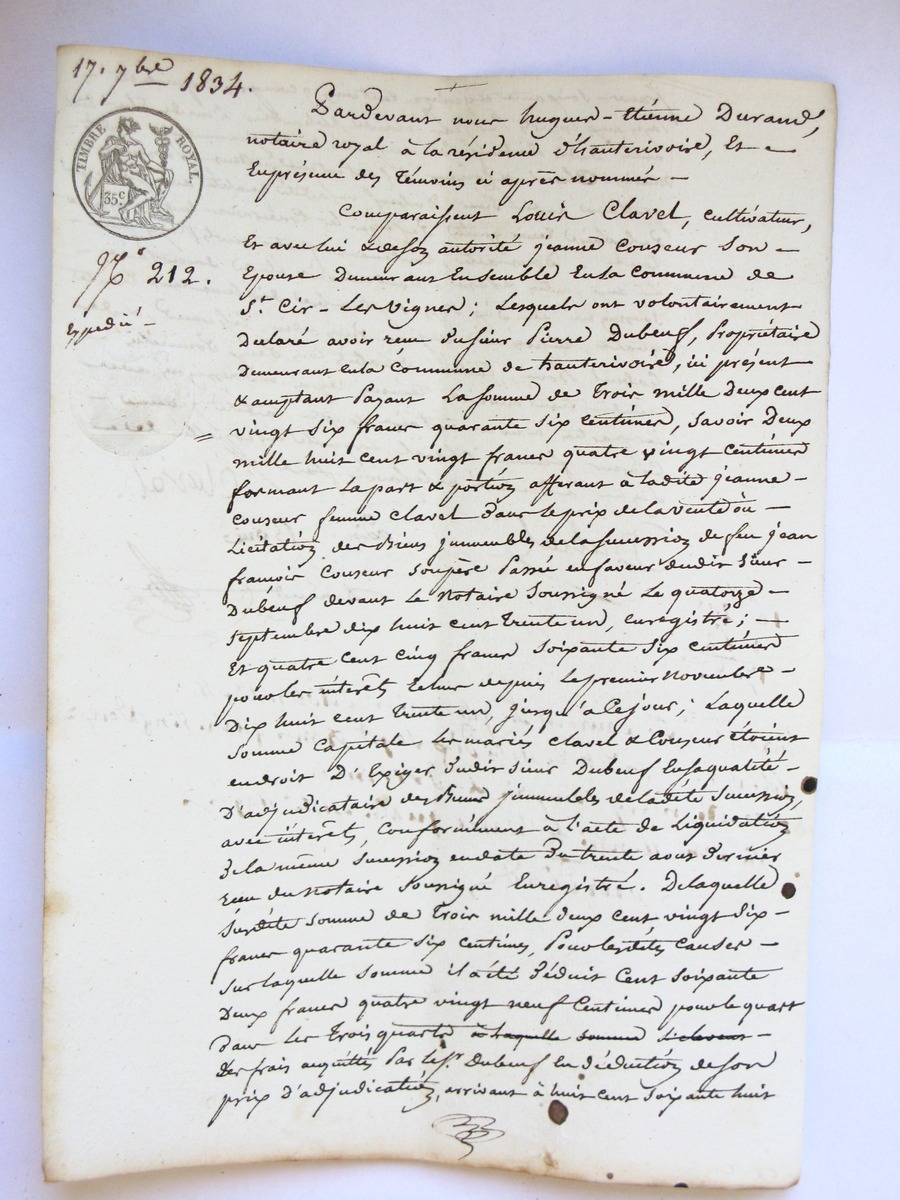 17. 7bre 1834.
TIMBRE ROYAL.
35c
No 212.
Expedié
Pardevant nous hugues-Etienne Durand,
notaire royal à la résidence d'hauterivoire, Et
En présence des témoins ci après nommés
Comparaissent Louis Clavel, cultivateur,
Et avec lui & de son autorité jeanne Couzeur son
Epouse Demeurant Ensemble En la Commune de
St. Cir-Les Vignes; Lesquels ont volontairement
Declaré avoir recu du sieur Pierre Dubeuf, Propriétaire
Demeurant en la Commune de hauterivoire, ici présent
& acceptant Payant La somme de Trois mille Deux cent
vingt six francs quarante six centimes, savoir Deux
mille huit cent vingt francs quatre vingt centimes
formant La part & portion afferant à ladite jeanne
Couzeur femme Clavel dans le prix de la vente où
Licitation des Biens jmmeubles de la succession de feu jean
francois Couzeur son père Passé en faveur dudit Sieur
Dubeuf devant Le Notaire Soussigné Le quatorze
Septembre dix huit cent trente un, enregistré;
Et quatre cent cinq francs soixante six centimes
pour les interêts depuis Le premier Novembre
Dix huit cent trente un, jusqu'à Ce jour; Laquelle
somme Capitale les mariés Clavel & Couzeur étoient
en droit D'Exiger dudit Sieur Dubeuf En sa qualité
D'adjudicataire des Biens jmmeubles de ladite Succession,
avec interêts, conformément à l'acte de Liquidation
de la même Succession en date du trente aout dernier
recu du Notaire Soussigné Enregistré. De laquelle
susdite somme de Trois mille deux cent vingt six
francs quarante six centimes, Pour lesdites causes
sur laquelle somme il a été déduit Cent soixante
Deux francs quatre vingt neuf Centimes pour le quart
dans les trois quarts à laquelle somme
des frais acquittés Par le Sr. Dubeuf En déduction de son
prix d'adjudication, arrivant à huit cent soixante huit